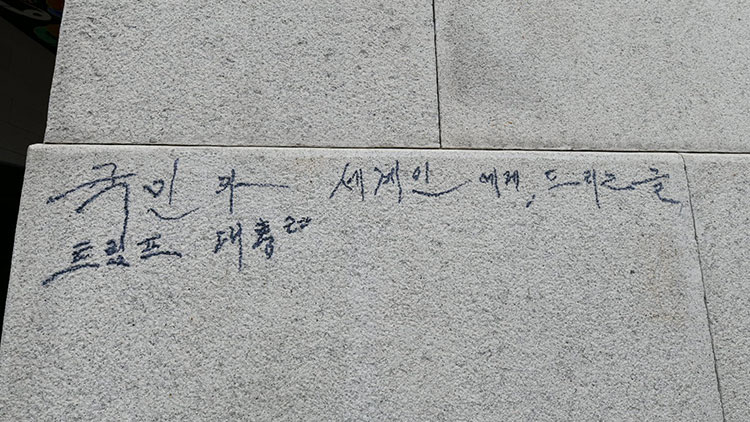 국민 과 세계인 에게, 드리는 글
트럼프 대통령